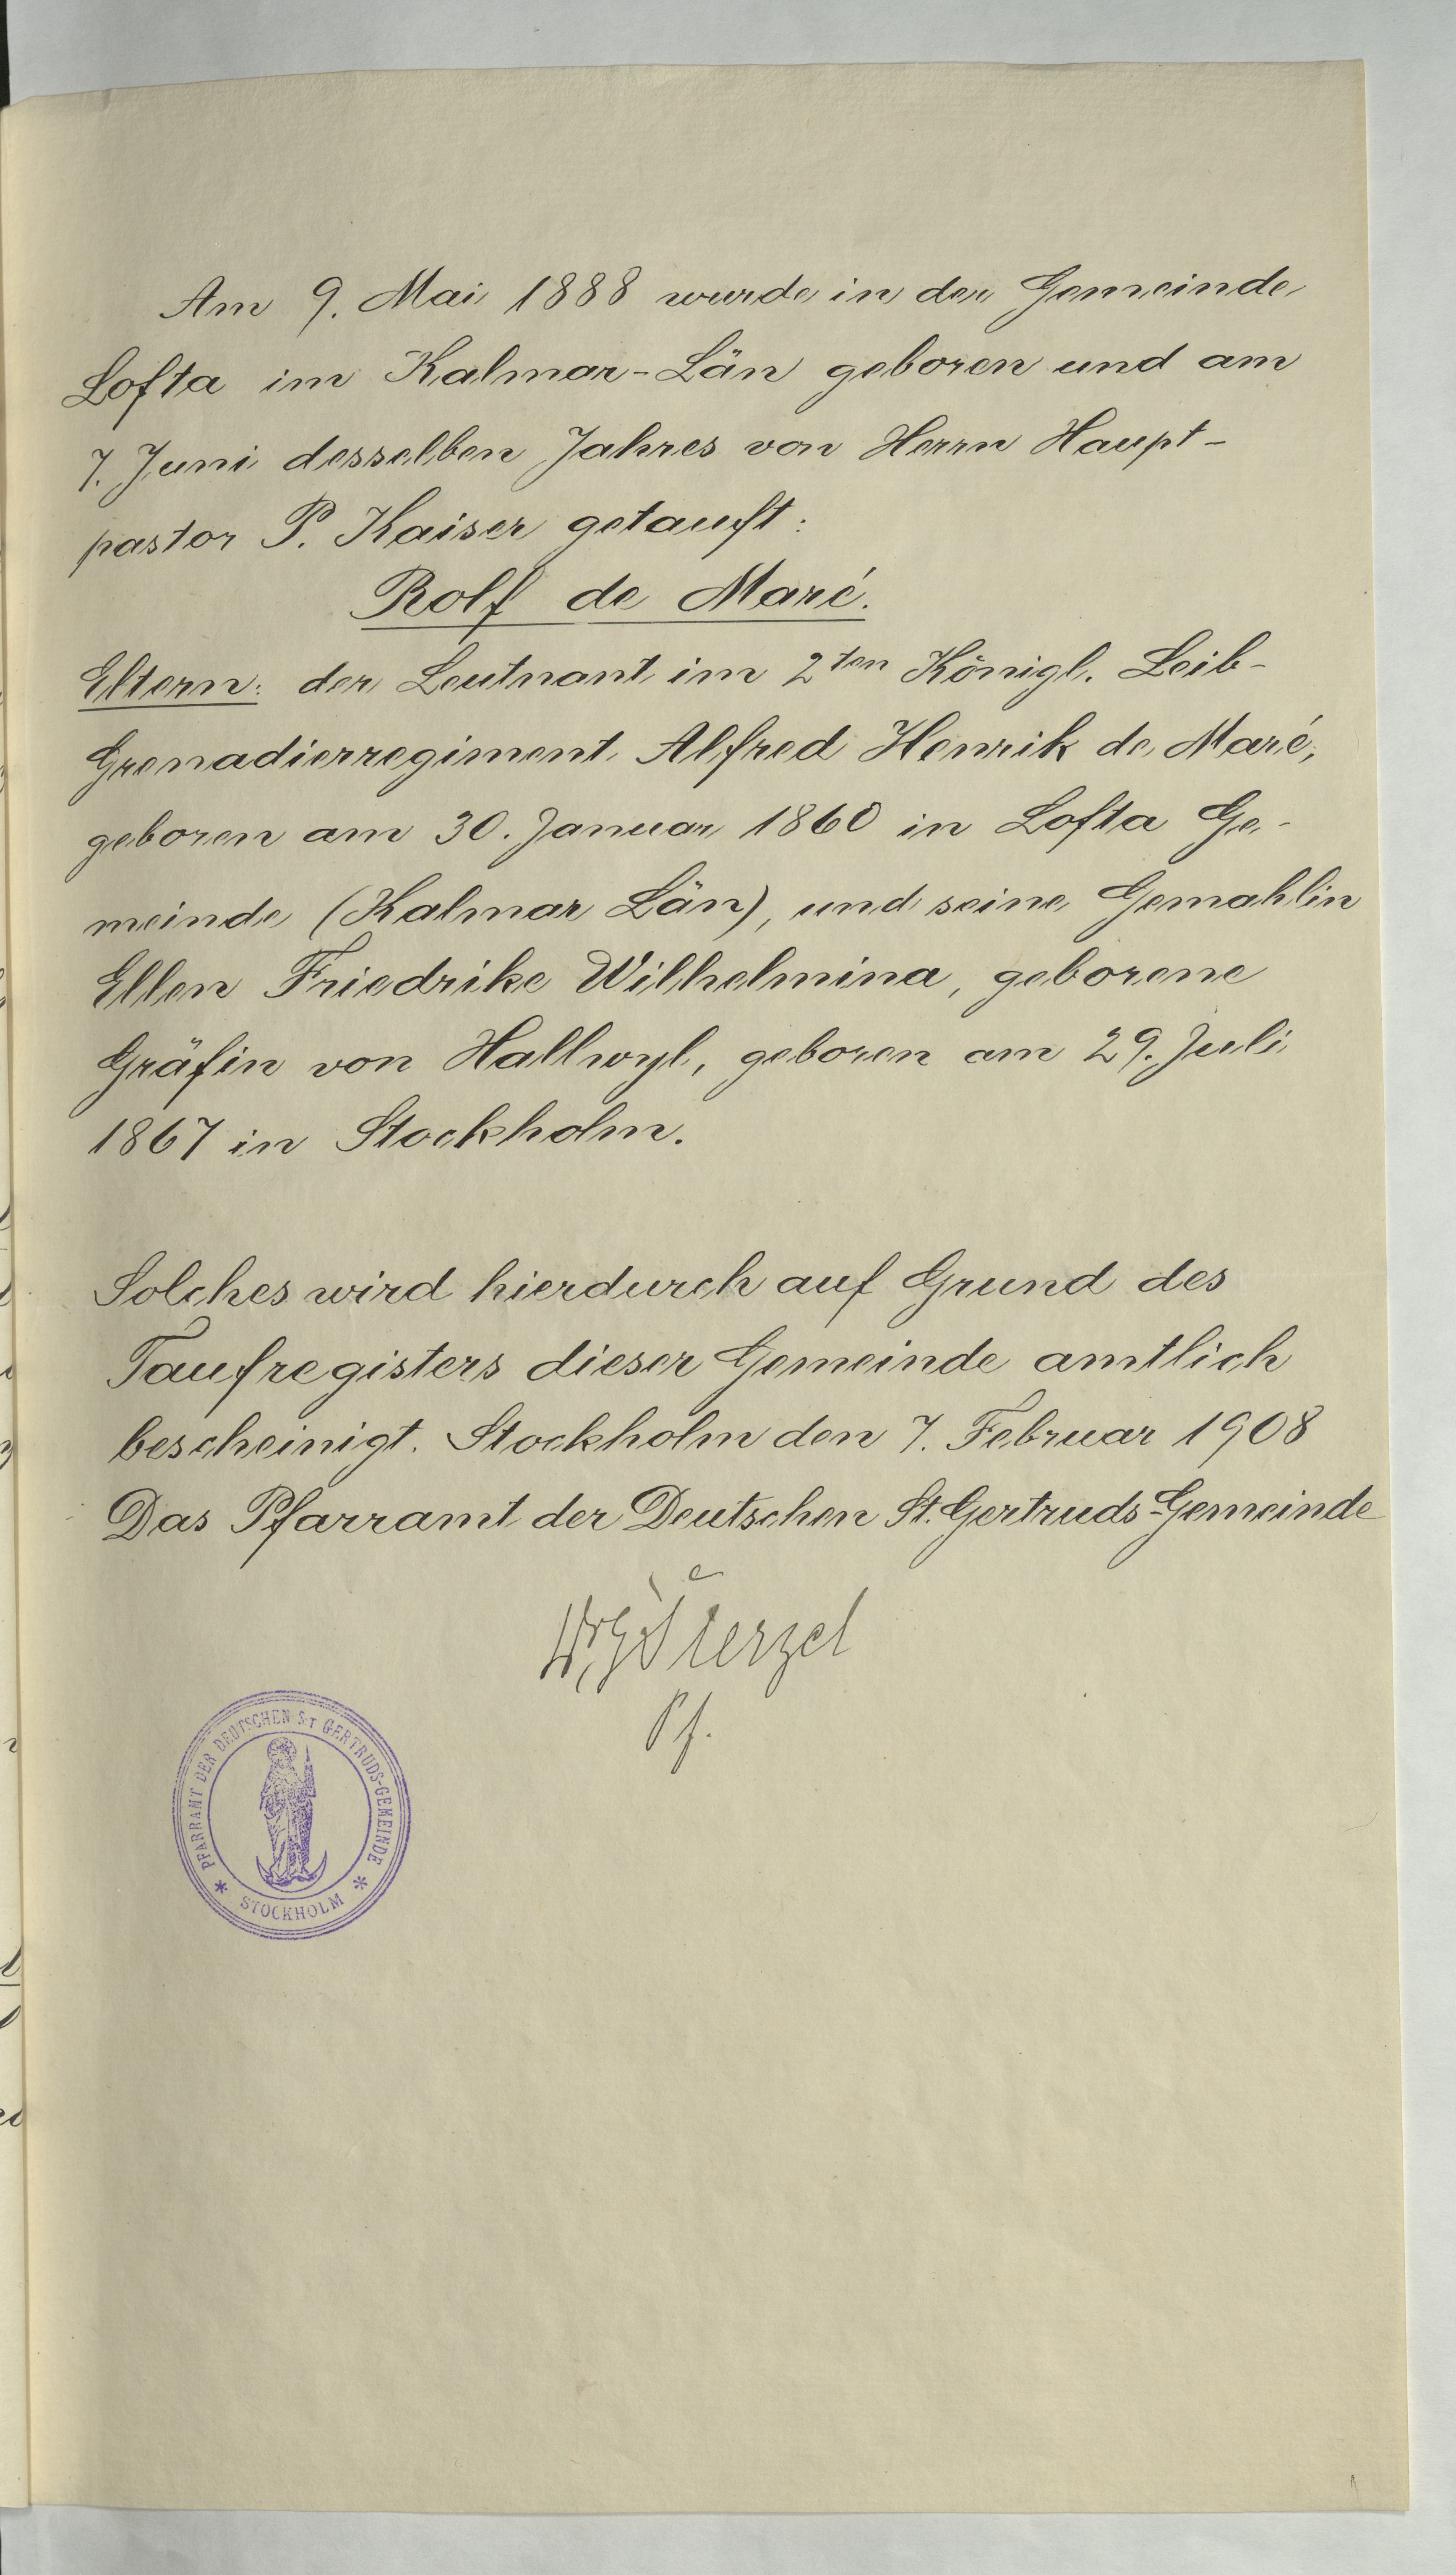 Am 9. Mai 1888 wurde in der Gemeinde
Lofta im Kalmar-Län geboren und am
7. Juni desselben Jahres von Herrn Haupt-
pastor P. Kaiser getauft:
Rolf de Maré.
Eltern: der Leutnant im 2ten Königl. Leib-
Grenadierregiment Alfred Henrik de Maré,
geboren am 30. Januar 1860 in Lofta Ge-
meinde (Kalmar Län), und seine Gemahlin
Ellen Friedrike Wilhelmina, geborene
Gräfin von Hallwyl, geboren am 29. Juli
1867 in Stockholm.
Solches wird hierdurch auf Grund des
Taufregisters dieser Gemeinde amtlich
bescheinigt. Stockholm den 7. Februar 1908
Das Pfarramt der Deutschen St. Gertruds-Gemeinde
Pf.
PFARRAMT DER DEUTSCHEN ST GERTRUDS-GEMEINDE
* STOCKHOLM *